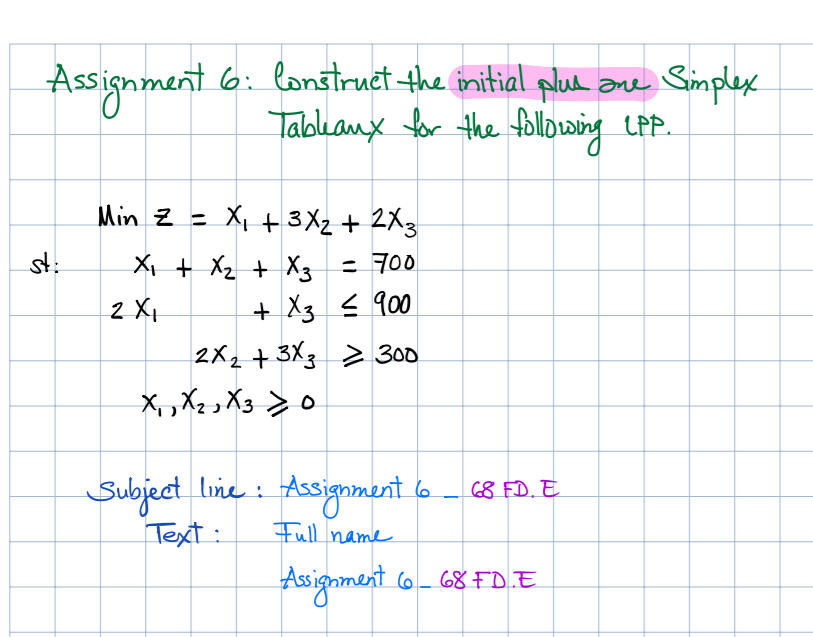 Assignment 6: Construct the initial plus one Simplex
Tableaux for the following LPP.
Min Z = X₁ + 3X₂ + 2X₃
st: X₁ + X₂ + X₃ = 700
2X₁ + X₃ ≤ 900
2X₂ + 3X₃ ≥ 300
X₁, X₂, X₃ ≥ 0
Subject line: Assignment 6 _ 68 FD.E
Text: Full name
Assignment 6 _ 68 FD.E